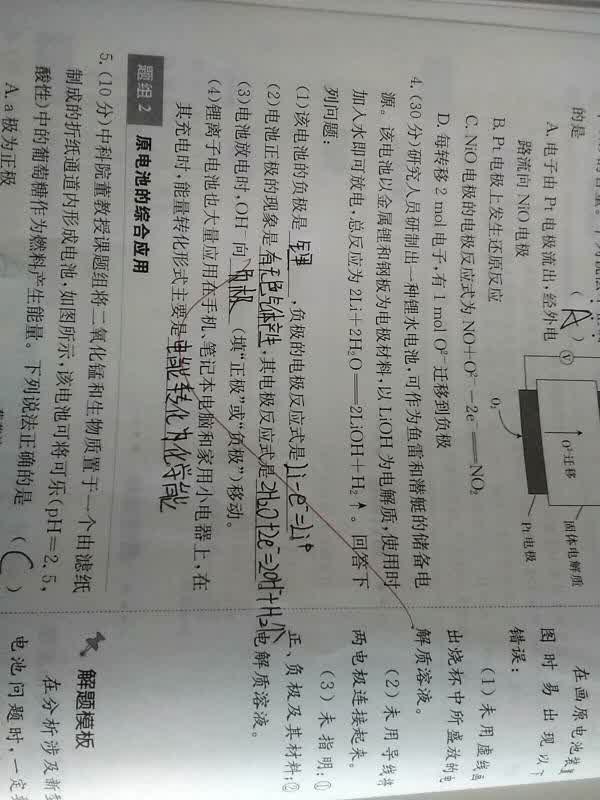 的是
( A )
A. 电子由 Pt 电极流出,经外电
路流向 NiO 电极
B. Pt 电极上发生还原反应
C. NiO 电极的电极反应式为 NO+O²⁻−2e⁻══NO₂
D. 每转移 2 mol 电子,有 1 mol O²⁻迁移到负极
V
O₂
O²⁻迁移
Pt 电极
固体电解质
4. (30 分)研究人员研制出一种锂水电池,可作为鱼雷和潜艇的储备电
源。该电池以金属锂和钢板为电极材料,以 LiOH 为电解质,使用时
加入水即可放电,总反应为 2Li+2H₂O══2LiOH+H₂↑。回答下
列问题:
(1)该电池的负极是 锂 ,负极的电极反应式是 Li-e⁻=Li⁺
(2)电池正极的现象是 有无色气体产生 ,其电极反应式是 2H₂O+2e⁻=2OH⁻+H₂↑
(3)电池放电时,OH⁻向 负极 (填“正极”或“负极”)移动。
(4)锂离子电池也大量应用在手机、笔记本电脑和家用小电器上,在
其充电时,能量转化形式主要是 电能转化为化学能
题组 2 原电池的综合应用
5. (10 分)中科院董教授课题组将二氧化锰和生物质置于一个由滤纸
制成的折纸通道内形成电池,如图所示,该电池可将可乐(pH=2.5,
酸性)中的葡萄糖作为燃料产生能量。下列说法正确的是 ( C )
A. a 极为正极
在画原电池装置
图时易出现以下
错误:
(1)未用虚线画
出烧杯中所盛放的电
解质溶液。
(2)未用导线将
两电极连接起来。
(3)未指明:①
正、负极及其材料;②
电解质溶液。
解题模板
在分析涉及新型
电池问题时,一定